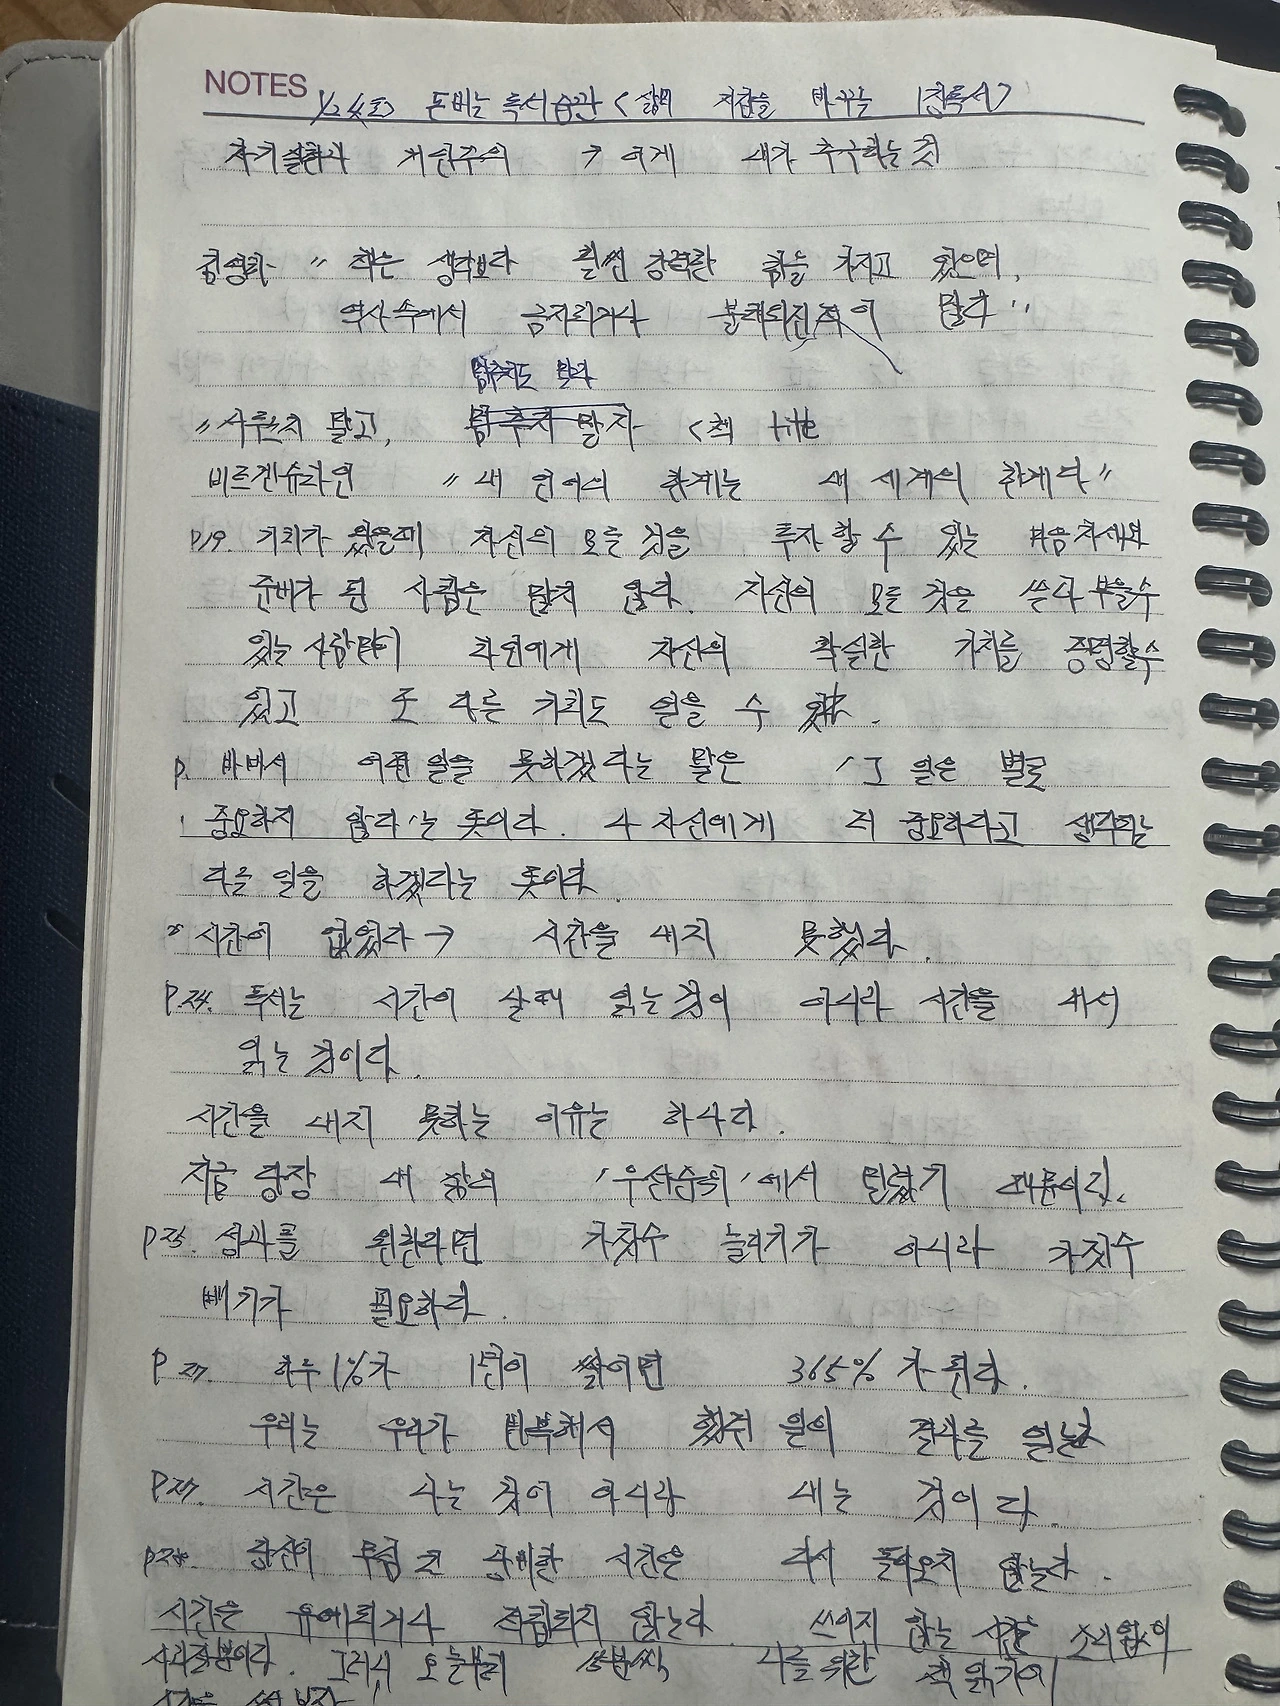 NOTES
1/24(토) 돈버는 독서습관 < 삶의 시간을 바꾸는
자기실현과 개인주의 → 에게 내가 추구하는 것
김영하 " 책은 생각보다 훨씬 강력한 힘을 가지고 있으며,
역사속에서 금지되거나 불태워진 적이 많다"
멈추지도 말라
"서두르지 말고, 멈추지 말자 <책 title
비트겐슈타인 "내 언어의 한계는 내 세계의 한계다"
P.19. 가치가 있을때 자신의 모든 것을 투자할 수 있는 마음자세와
준비가 된 사람은 많지 않다. 자신의 모든 것을 쏟아부을수
있는 사람만이 타인에게 자신의 확실한 가치를 증명할수
있고 또 다른 가치도 얻을 수 있다.
P. 바빠서 어떤 일을 못하겠다는 말은 '그 일은 별로
중요하지 않다'는 뜻이다. 나 자신에게 더 중요하다고 생각되는
다른 일을 하겠다는 뜻이다.
" 시간이 없었다 → 시간을 내지 못했다.
P.24. 독서는 시간이 날때 읽는것이 아니라 시간을 내서
읽는 것이다.
시간을 내지 못하는 이유는 하나다.
지금 당장 내 삶의 '우선순위'에서 밀렸기 때문이다.
P 25. 성과를 원한다면 가짓수 늘리기가 아니라 가짓수
빼기가 필요하다.
P 27. 하루 1%가 1년이 쌓이면 365%가 된다.
우리는 우리가 반복해서 했던 일의 결과를 얻는다
P 27. 시간은 나는 것이 아니라 내는 것이다.
P 28. 당신이 두 번 낭비한 시간은 다시 돌아오지 않는다.
시간은 유예되거나 적립되지 않는다. 쓰이지 않는 시간은 소리없이
사라질뿐이다. 그러니 오늘부터 나를 위한 책 읽기에
시간을 써보자